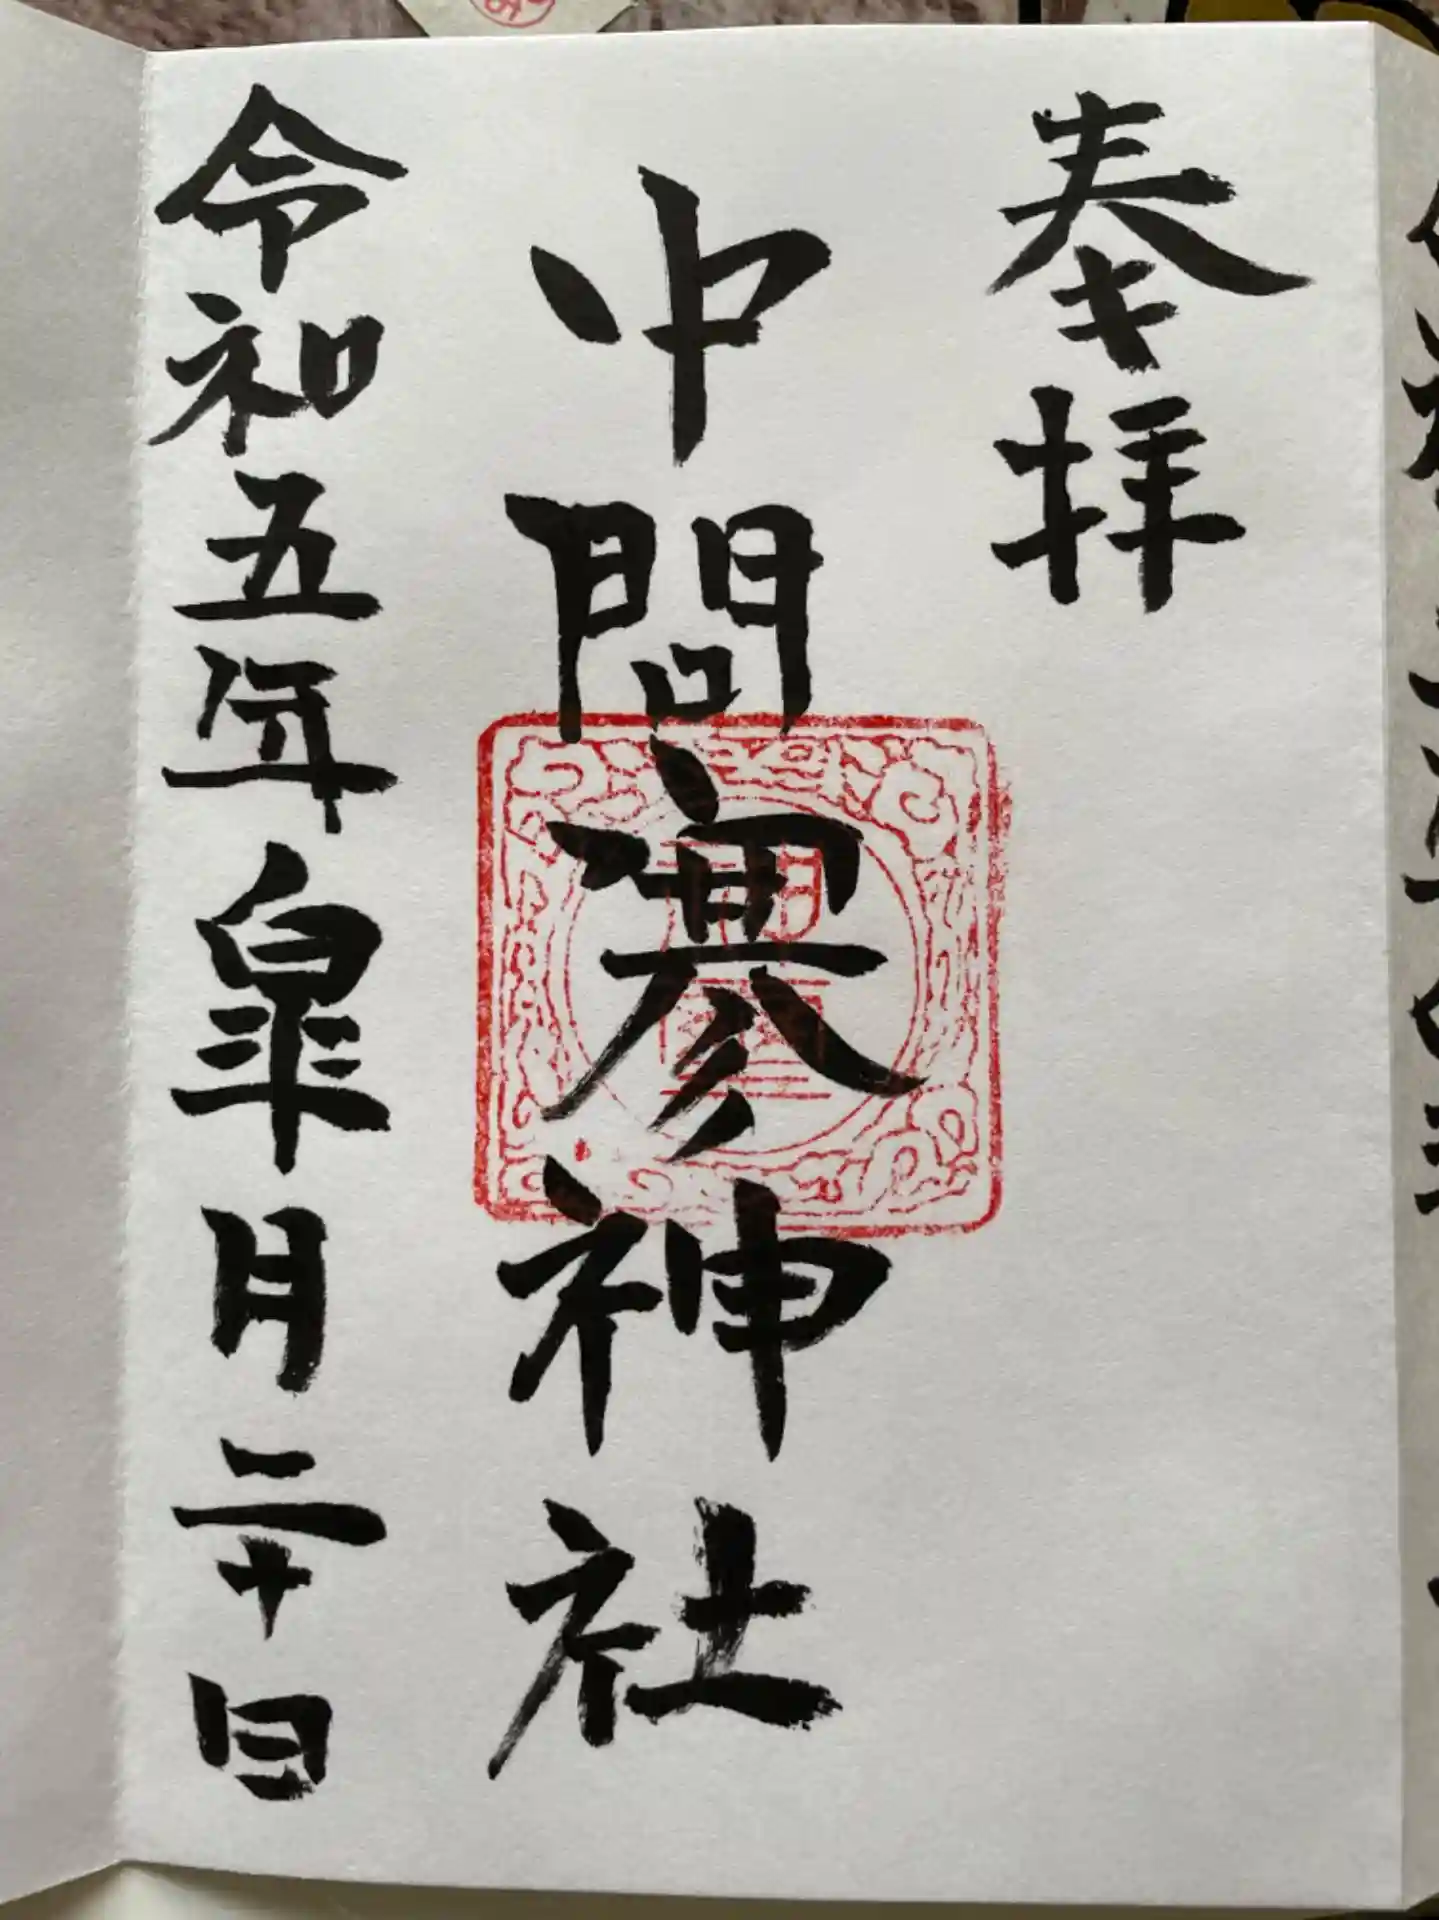 奉拝
中問寒神社
令和五年皐月二十日